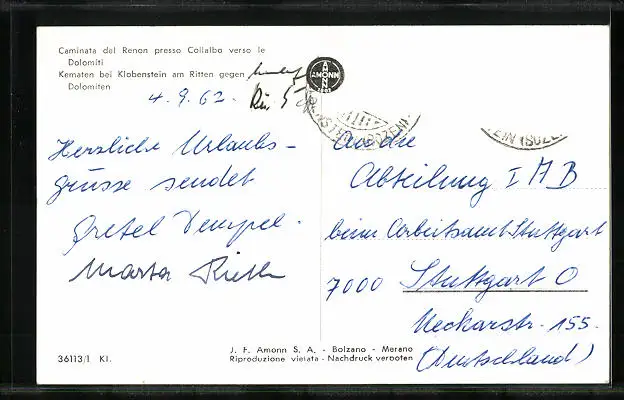 Caminata del Renon presso Collalbo verso le
Dolomiti
Kematen bei Klobenstein am Ritten gegen
Dolomiten
AMONN
4. 9. 62.
Herzliche Urlaubs-
grüsse sendet
Gretel Tempel.
Marta Rieth
An die
Abteilung I A B
beim Arbeitsamt Stuttgart
7000 Stuttgart O
Neckarstr. 155.
(Deutschland)
J. F. Amonn S. A. - Bolzano - Merano
Riproduzione vietata - Nachdruck verboten
36113/I Kl.